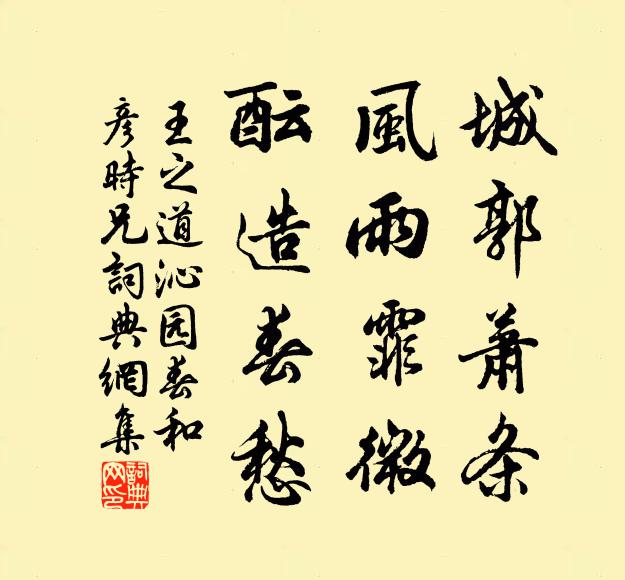 城郭萧条
風雨霏微
酝造春愁
王之道沁园春和
彦時兄詞典網集
詞典网印